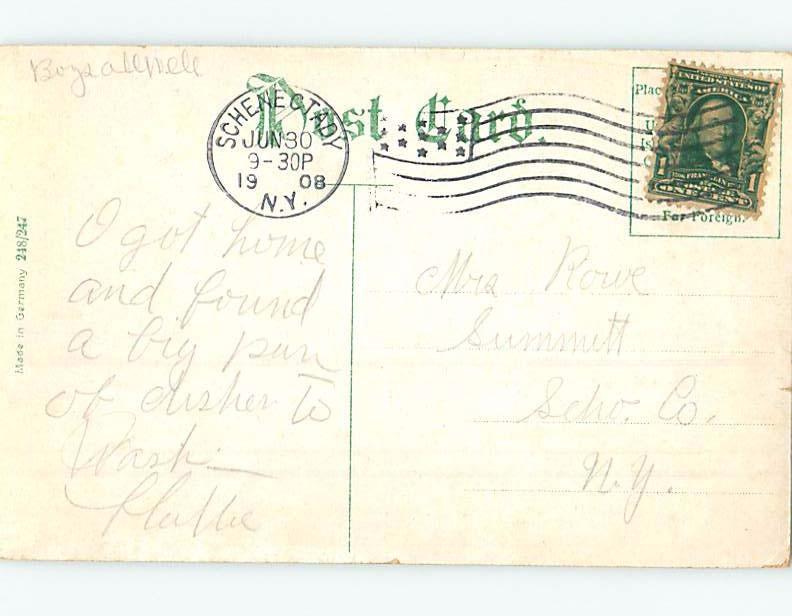 Boys all well
Post Card.
SCHENECTADY
JUN 30
9-30P
19 08
N.Y.
Plac
UNITED STATES OF
AMERICA
U
Is
C
FRANKLIN
1 1
ONE CENT
For Foreign.
Made in Germany 248/247
I got home
and found
a big pan
of dishes to
Wash.
Mrs Rowe
Summitt
Scho. Co.
N.Y.